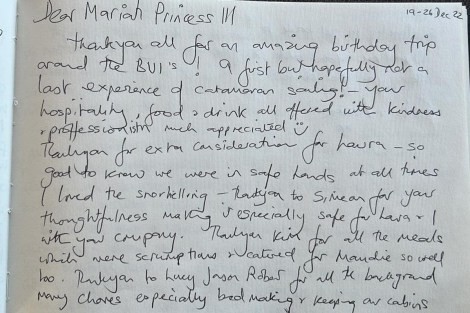 Dear Mariah Princess III
19-26 Dec 22
Thankyou all for an amazing birthday trip
around the BVI's! A first but hopefully not a
last experience of catamaran sailing! - your
hospitality, food & drink all offered with kindness
& professionalism much appreciated ☺
Thankyou for extra consideration for Laura - so
good to know we were in safe hands at all times
I loved the snorkelling - thankyou to Simean for your
thoughtfulness making it especially safe for Lara & I
with your company. Thankyou Kim for all the meals
which were scrumptious & catered for Maudie so well
too. Thankyou to Lucy Jason Robert for all the background
many chores especially bed making & keeping our cabins